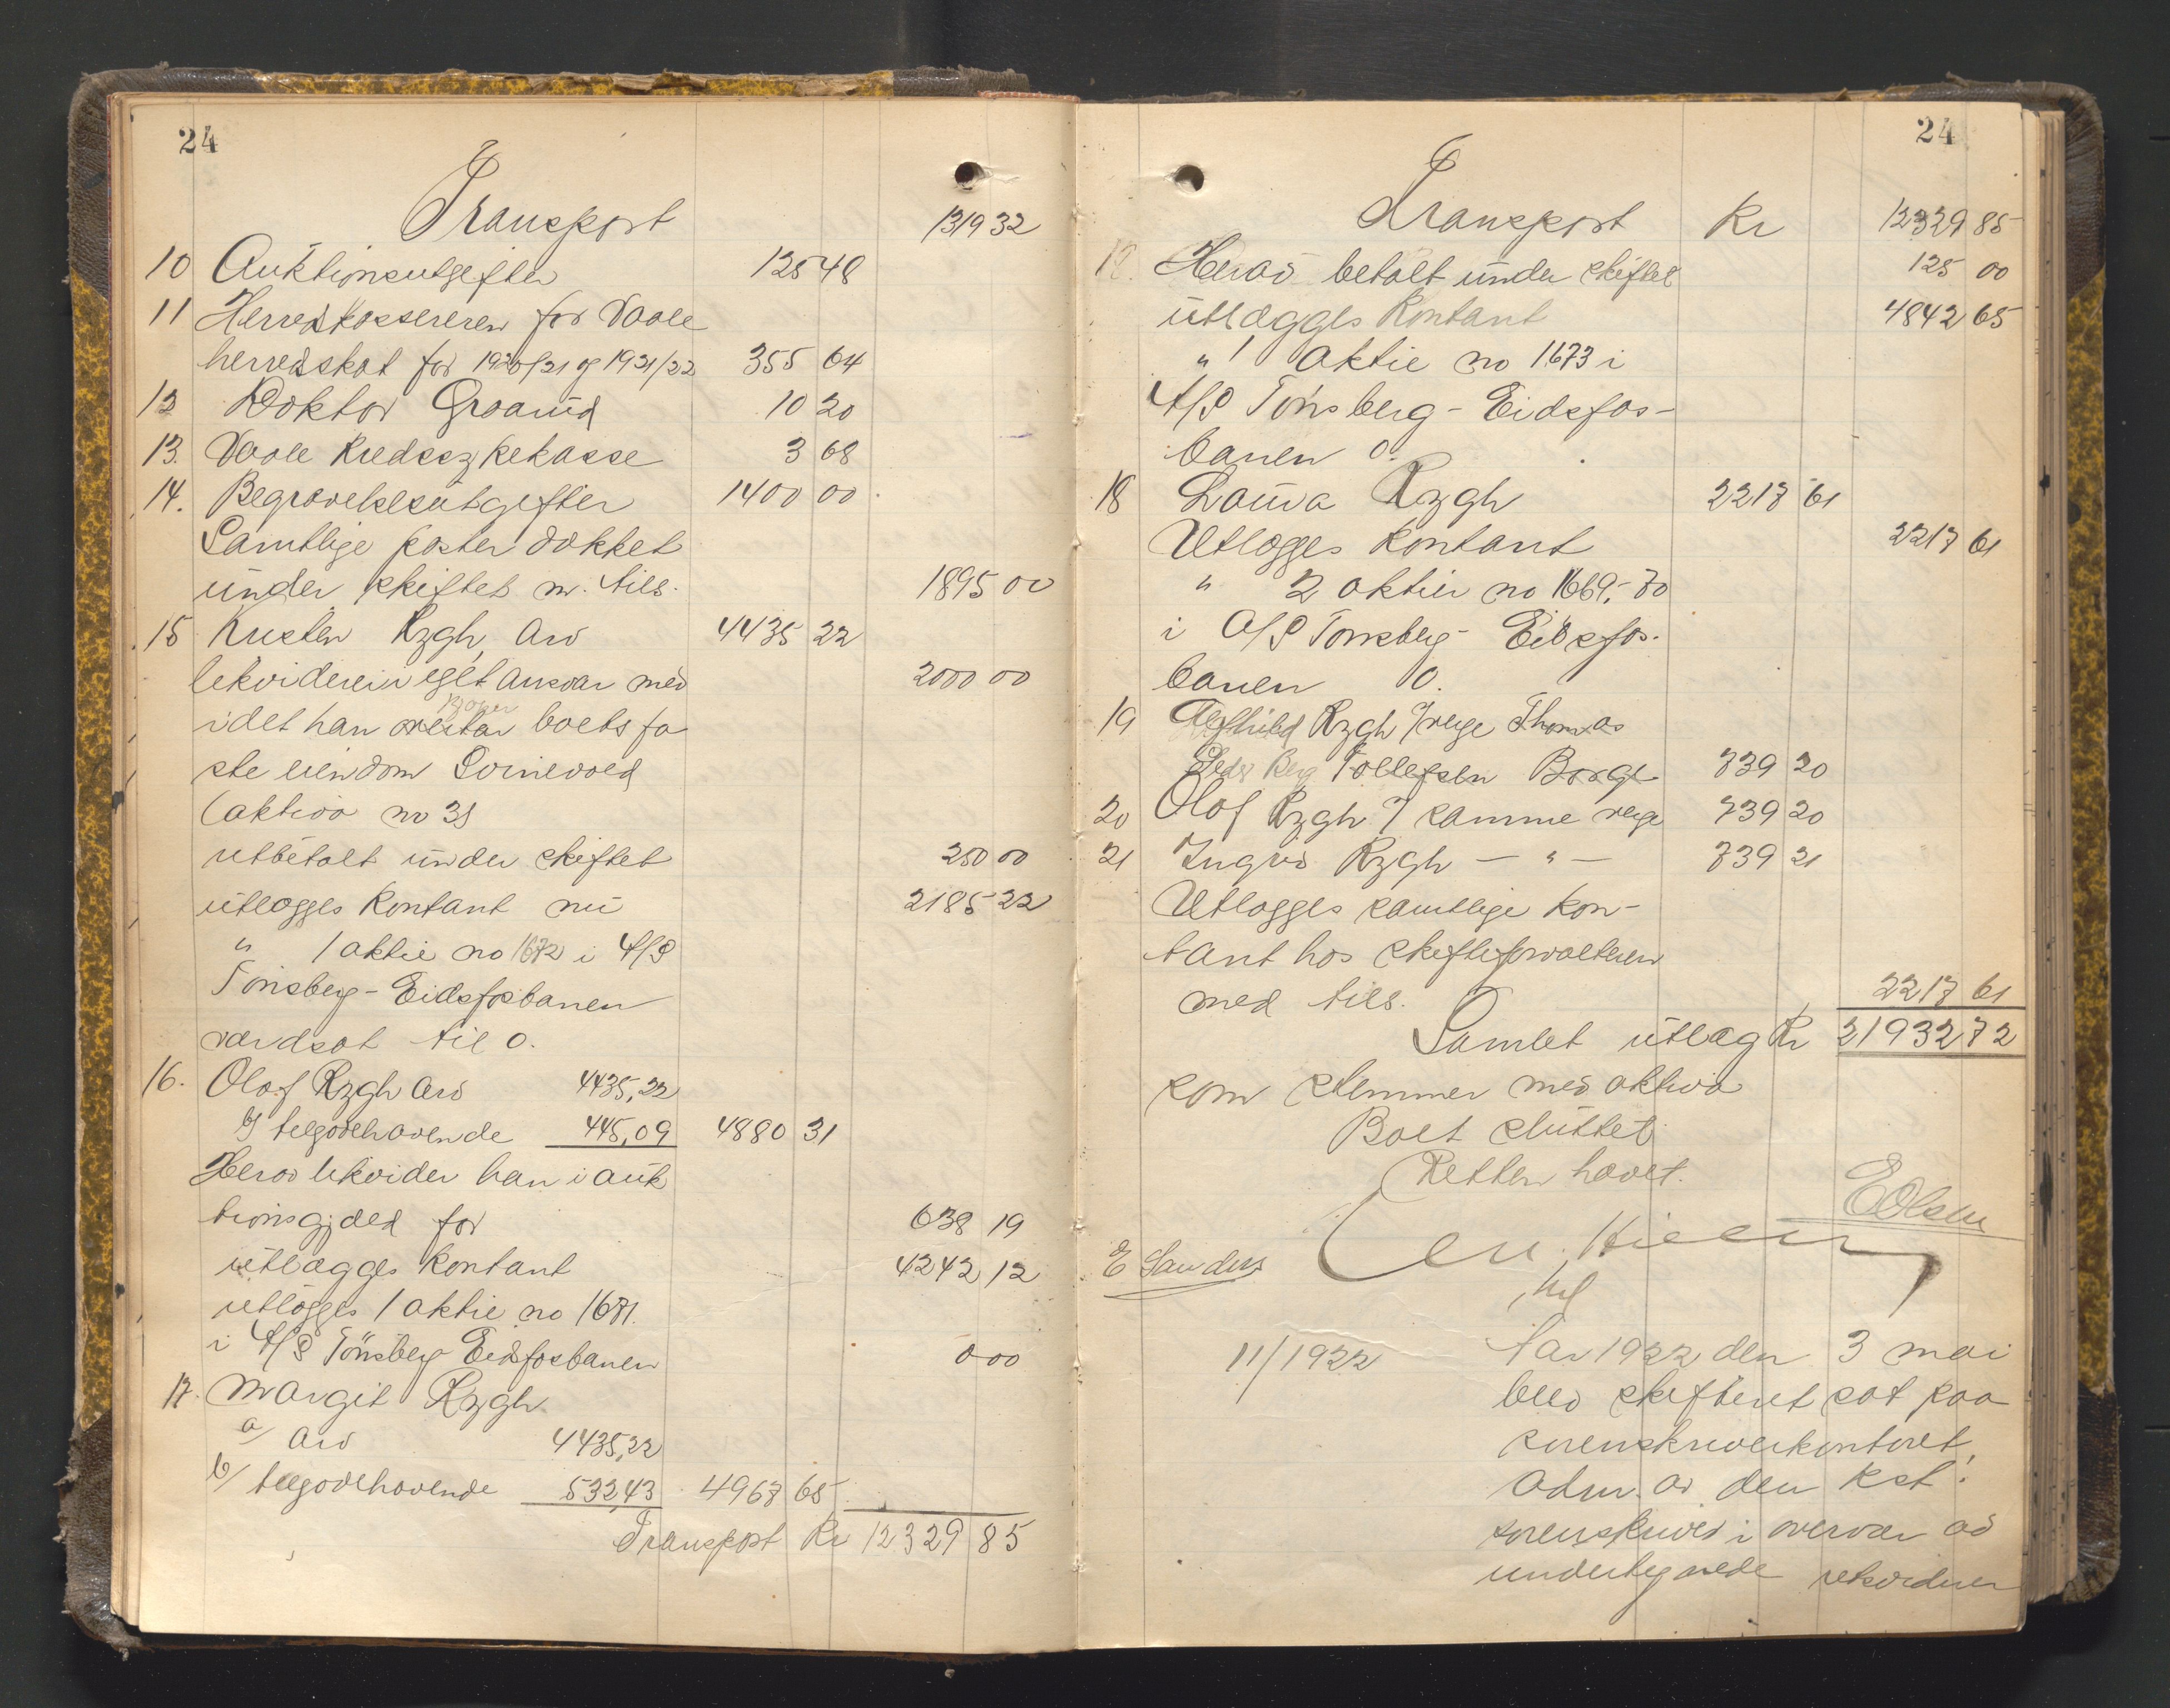 24
Transport 1319 32
10 Auktionsutgifter 125 48
11 Herredskassereren for Vaale
herredsskat for 1920/21 og 1921/22 355 64
12 Doktor Graarud 10 20
13. Vaale kredssykekasse 3 68
14. Begravelsesutgifter 1400 00
Samtlige poster dækket
under skiftet m. tils. 1895 00
15 Kristen Rygh, arv 4435 22
likviderer i eget ansvar med 2000 00
kjøper
idet han overtar boets fa
ste eiendom
(aktiva no 3)
utbetalt under skiftet 250 00
utlægges kontant nu 2185 22
" 1 aktie no 1672 i A/S
Tönsberg-Eidsfosbanen
værdsat til 0.
16. Olaf Rygh arv 4435,22
b/ tilgodehavende 445,09 4880 31
Herav likvider han i auk
tionsgjæld for 638 19
utlægges kontant 4242 12
utlægges 1 aktie no 1671.
i A/S Tönsberg Eidsfosbanen 0 00
17. Margit Rygh
a/ arv 4435,22
b/ tilgodehavende 532,43 4967 65
Transport Kr 12329 85
24
Transport Kr 12329 85
Herav betalt under skiftet 125 00
utlægges kontant 4842 65
" 1 aktie no 1673 i
A/S Tönsberg-Eidsfos-
banen 0.
18 Laura Rygh 2217 61
Utlægges kontant 2217 61
" 2 aktier no 1669-70
i A/S Tönsberg-Eidsfos-
banen 0.
19 Alfhild Rygh v/ verge Thomas
Peder Berg Tollefsen Borge 739 20
20 Olaf Rygh v/ samme verge 739 20
21 Ingrid Rygh — " — 739 21
Utlægges samtlige kon-
tant hos skifteforvalteren
med tils. 2217 61
Samlet utlæg Kr 21932 72
som stemmer med aktiva
Boet sluttet.
Retten hævet.
EOlsen
E Sanders
11/1922 Aar 1922 den 3 mai
blev skifteret sat paa
sorenskriverkontoret,
adm. av den kst.
sorenskriver i overvær av
undertegnede